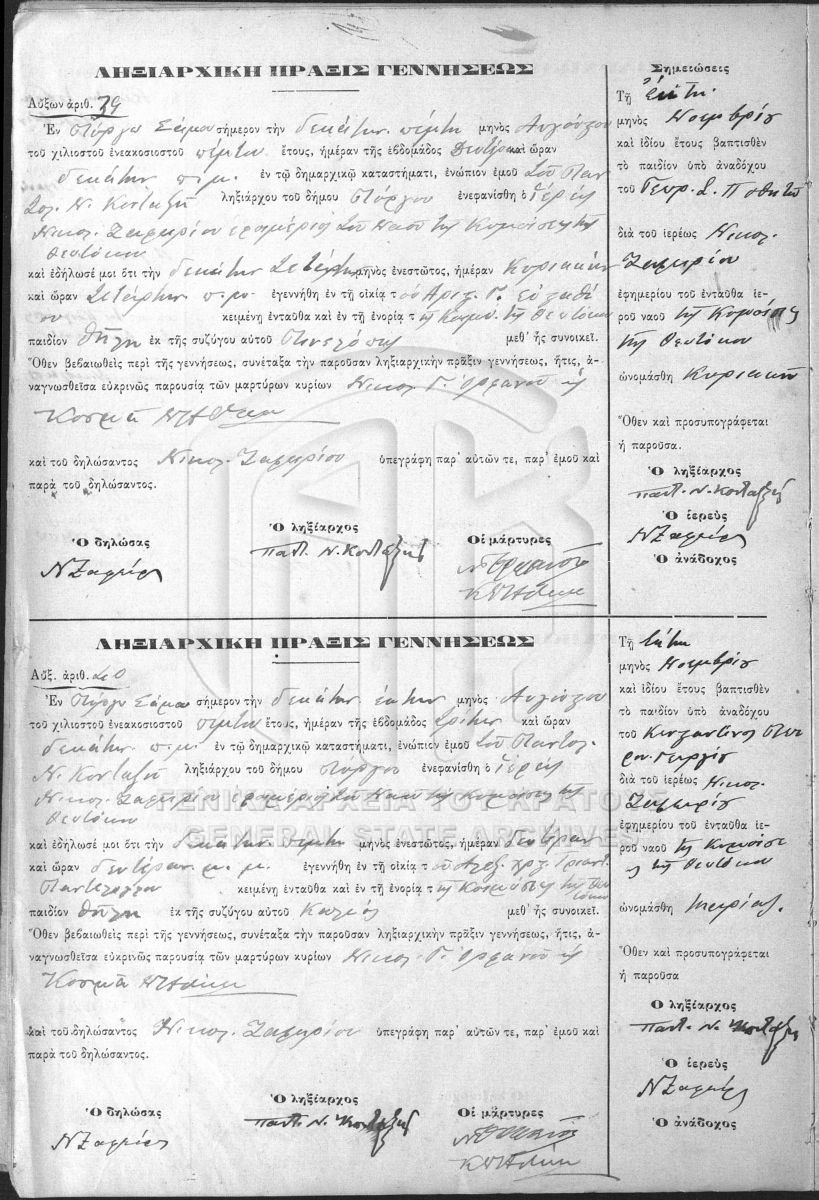 ΛΗΞΙΑΡΧΙΚΗ ΠΡΑΞΙΣ ΓΕΝΝΗΣΕΩΣ
Αὔξων ἀριθ. 39
Ἐν Πύργῳ Σάμου σήμερον τὴν δεκάτην πέμπτην μηνὸς Αὐγούστου
τοῦ χιλιοστοῦ ἐνεακοσιοστοῦ πέμπτου ἔτους, ἡμέραν τῆς ἑβδομάδος Δευτέραν καὶ ὥραν
δεκάτην π.μ. ἐν τῷ δημαρχικῷ καταστήματι, ἐνώπιον ἐμοῦ τοῦ Παν
Ν. Κονταξῆ ληξιάρχου τοῦ δήμου Πύργου ἐνεφανίσθη ὁ ἱερεὺς
Νικολ. Ζαφειρίου ἐφημέριος τοῦ Ναοῦ τῆς Κοιμήσεως τῆς
Θεοτόκου
καὶ ἐδήλωσέ μοι ὅτι τὴν δεκάτην τετάρτην μηνὸς ἐνεστῶτος, ἡμέραν Κυριακὴν
καὶ ὥραν τετάρτην π.μ. ἐγεννήθη ἐν τῇ οἰκίᾳ τοῦ Ἀριστ. Γ.
κειμένῃ ἐνταῦθα καὶ ἐν τῇ ἐνορίᾳ τῆς Κοιμ. τῆς Θεοτόκου
παιδίον θῆλυ ἐκ τῆς συζύγου αὐτοῦ Πηνελόπης μεθ' ἧς συνοικεῖ.
Ὅθεν βεβαιωθεὶς περὶ τῆς γεννήσεως, συνέταξα τὴν παροῦσαν ληξιαρχικὴν πρᾶξιν γεννήσεως, ἥτις, ἀ-
ναγνωσθεῖσα εὐκρινῶς παρουσίᾳ τῶν μαρτύρων κυρίων Νικολ. Γ. Ὀρφανοῦ κ
Κοσμᾶ
καὶ τοῦ δηλώσαντος Νικολ. Ζαφειρίου ὑπεγράφη παρ' αὐτῶν τε, παρ' ἐμοῦ καὶ
παρὰ τοῦ δηλώσαντος.
Ὁ δηλώσας
Ν Ζαφείρ
Ὁ ληξίαρχος
Παντ. Ν. Κονταξῆς
Οἱ μάρτυρες
Σημειώσεις
Τῇ ἕκτῃ
μηνὸς Νοεμβρίου
καὶ ἰδίου ἔτους βαπτισθὲν
τὸ παιδίον ὑπὸ ἀναδόχου
τοῦ Γεωρ. Σ.
διὰ τοῦ ἱερέως Νικολ.
Ζαφειρίου
ἐφημερίου τοῦ ἐνταῦθα ἱε-
ροῦ ναοῦ τῆς Κοιμήσεως
τῆς Θεοτόκου
ὠνομάσθη Κυριακὴ
Ὅθεν καὶ προσυπογράφεται
ἡ παροῦσα.
Ὁ ληξίαρχος
Παντ. Ν. Κονταξῆς
Ὁ ἱερεὺς
Ν Ζαφείρ
Ὁ ἀνάδοχος
ΛΗΞΙΑΡΧΙΚΗ ΠΡΑΞΙΣ ΓΕΝΝΗΣΕΩΣ
Αὔξ. ἀριθ. 40
Ἐν Πύργῳ Σάμου σήμερον τὴν δεκάτην ἕκτην μηνὸς Αὐγούστου
τοῦ χιλιοστοῦ ἐνεακοσιοστοῦ πέμπτου ἔτους, ἡμέραν τῆς ἑβδομάδος Τρίτην καὶ ὥραν
δεκάτην π.μ. ἐν τῷ δημαρχικῷ καταστήματι, ἐνώπιον ἐμοῦ τοῦ Παντολ.
Ν. Κονταξῆ ληξιάρχου τοῦ δήμου Πύργου ἐνεφανίσθη ὁ ἱερεὺς
Νικολ. Ζαφειρίου ἐφημέριος τοῦ Ναοῦ τῆς Κοιμήσεως τῆς
Θεοτόκου
ΓΕΝΙΚΑ ΑΡΧΕΙΑ ΤΟΥ ΚΡΑΤΟΥΣ
GENERAL STATE ARCHIVES
καὶ ἐδήλωσέ μοι ὅτι τὴν δεκάτην πέμπτην μηνὸς ἐνεστῶτος, ἡμέραν δευτέραν
καὶ ὥραν δευτέραν μ.μ. ἐγεννήθη ἐν τῇ οἰκίᾳ τοῦ
κειμένῃ ἐνταῦθα καὶ ἐν τῇ ἐνορίᾳ τῆς Κοιμήσεως τῆς Θεο
τόκου
παιδίον θῆλυ ἐκ τῆς συζύγου αὐτοῦ μεθ' ἧς συνοικεῖ.
Ὅθεν βεβαιωθεὶς περὶ τῆς γεννήσεως, συνέταξα τὴν παροῦσαν ληξιαρχικὴν πρᾶξιν γεννήσεως, ἥτις, ἀ-
ναγνωσθεῖσα εὐκρινῶς παρουσίᾳ τῶν μαρτύρων κυρίων Νικολ. Γ. Ὀρφανοῦ κ
Κοσμᾶ
καὶ τοῦ δηλώσαντος Νικολ. Ζαφειρίου ὑπεγράφη παρ' αὐτῶν τε, παρ' ἐμοῦ καὶ
παρὰ τοῦ δηλώσαντος.
Ὁ δηλώσας
Ν Ζαφείρ
Ὁ ληξίαρχος
Παντ. Ν. Κονταξῆς
Οἱ μάρτυρες
Τῇ ἕκτῃ
μηνὸς Νοεμβρίου
καὶ ἰδίου ἔτους βαπτισθὲν
τὸ παιδίον ὑπὸ ἀναδόχου
τοῦ Κωνσταντίνου
διὰ τοῦ ἱερέως Νικολ.
Ζαφειρίου
ἐφημερίου τοῦ ἐνταῦθα ἱε-
ροῦ ναοῦ τῆς Κοιμήσεω
ς τῆς Θεοτόκου
ὠνομάσθη
Ὅθεν καὶ προσυπογράφεται
ἡ παροῦσα
Ὁ ληξίαρχος
Παντ. Ν. Κονταξῆς
Ὁ ἱερεὺς
Ν Ζαφείρ
Ὁ ἀνάδοχος